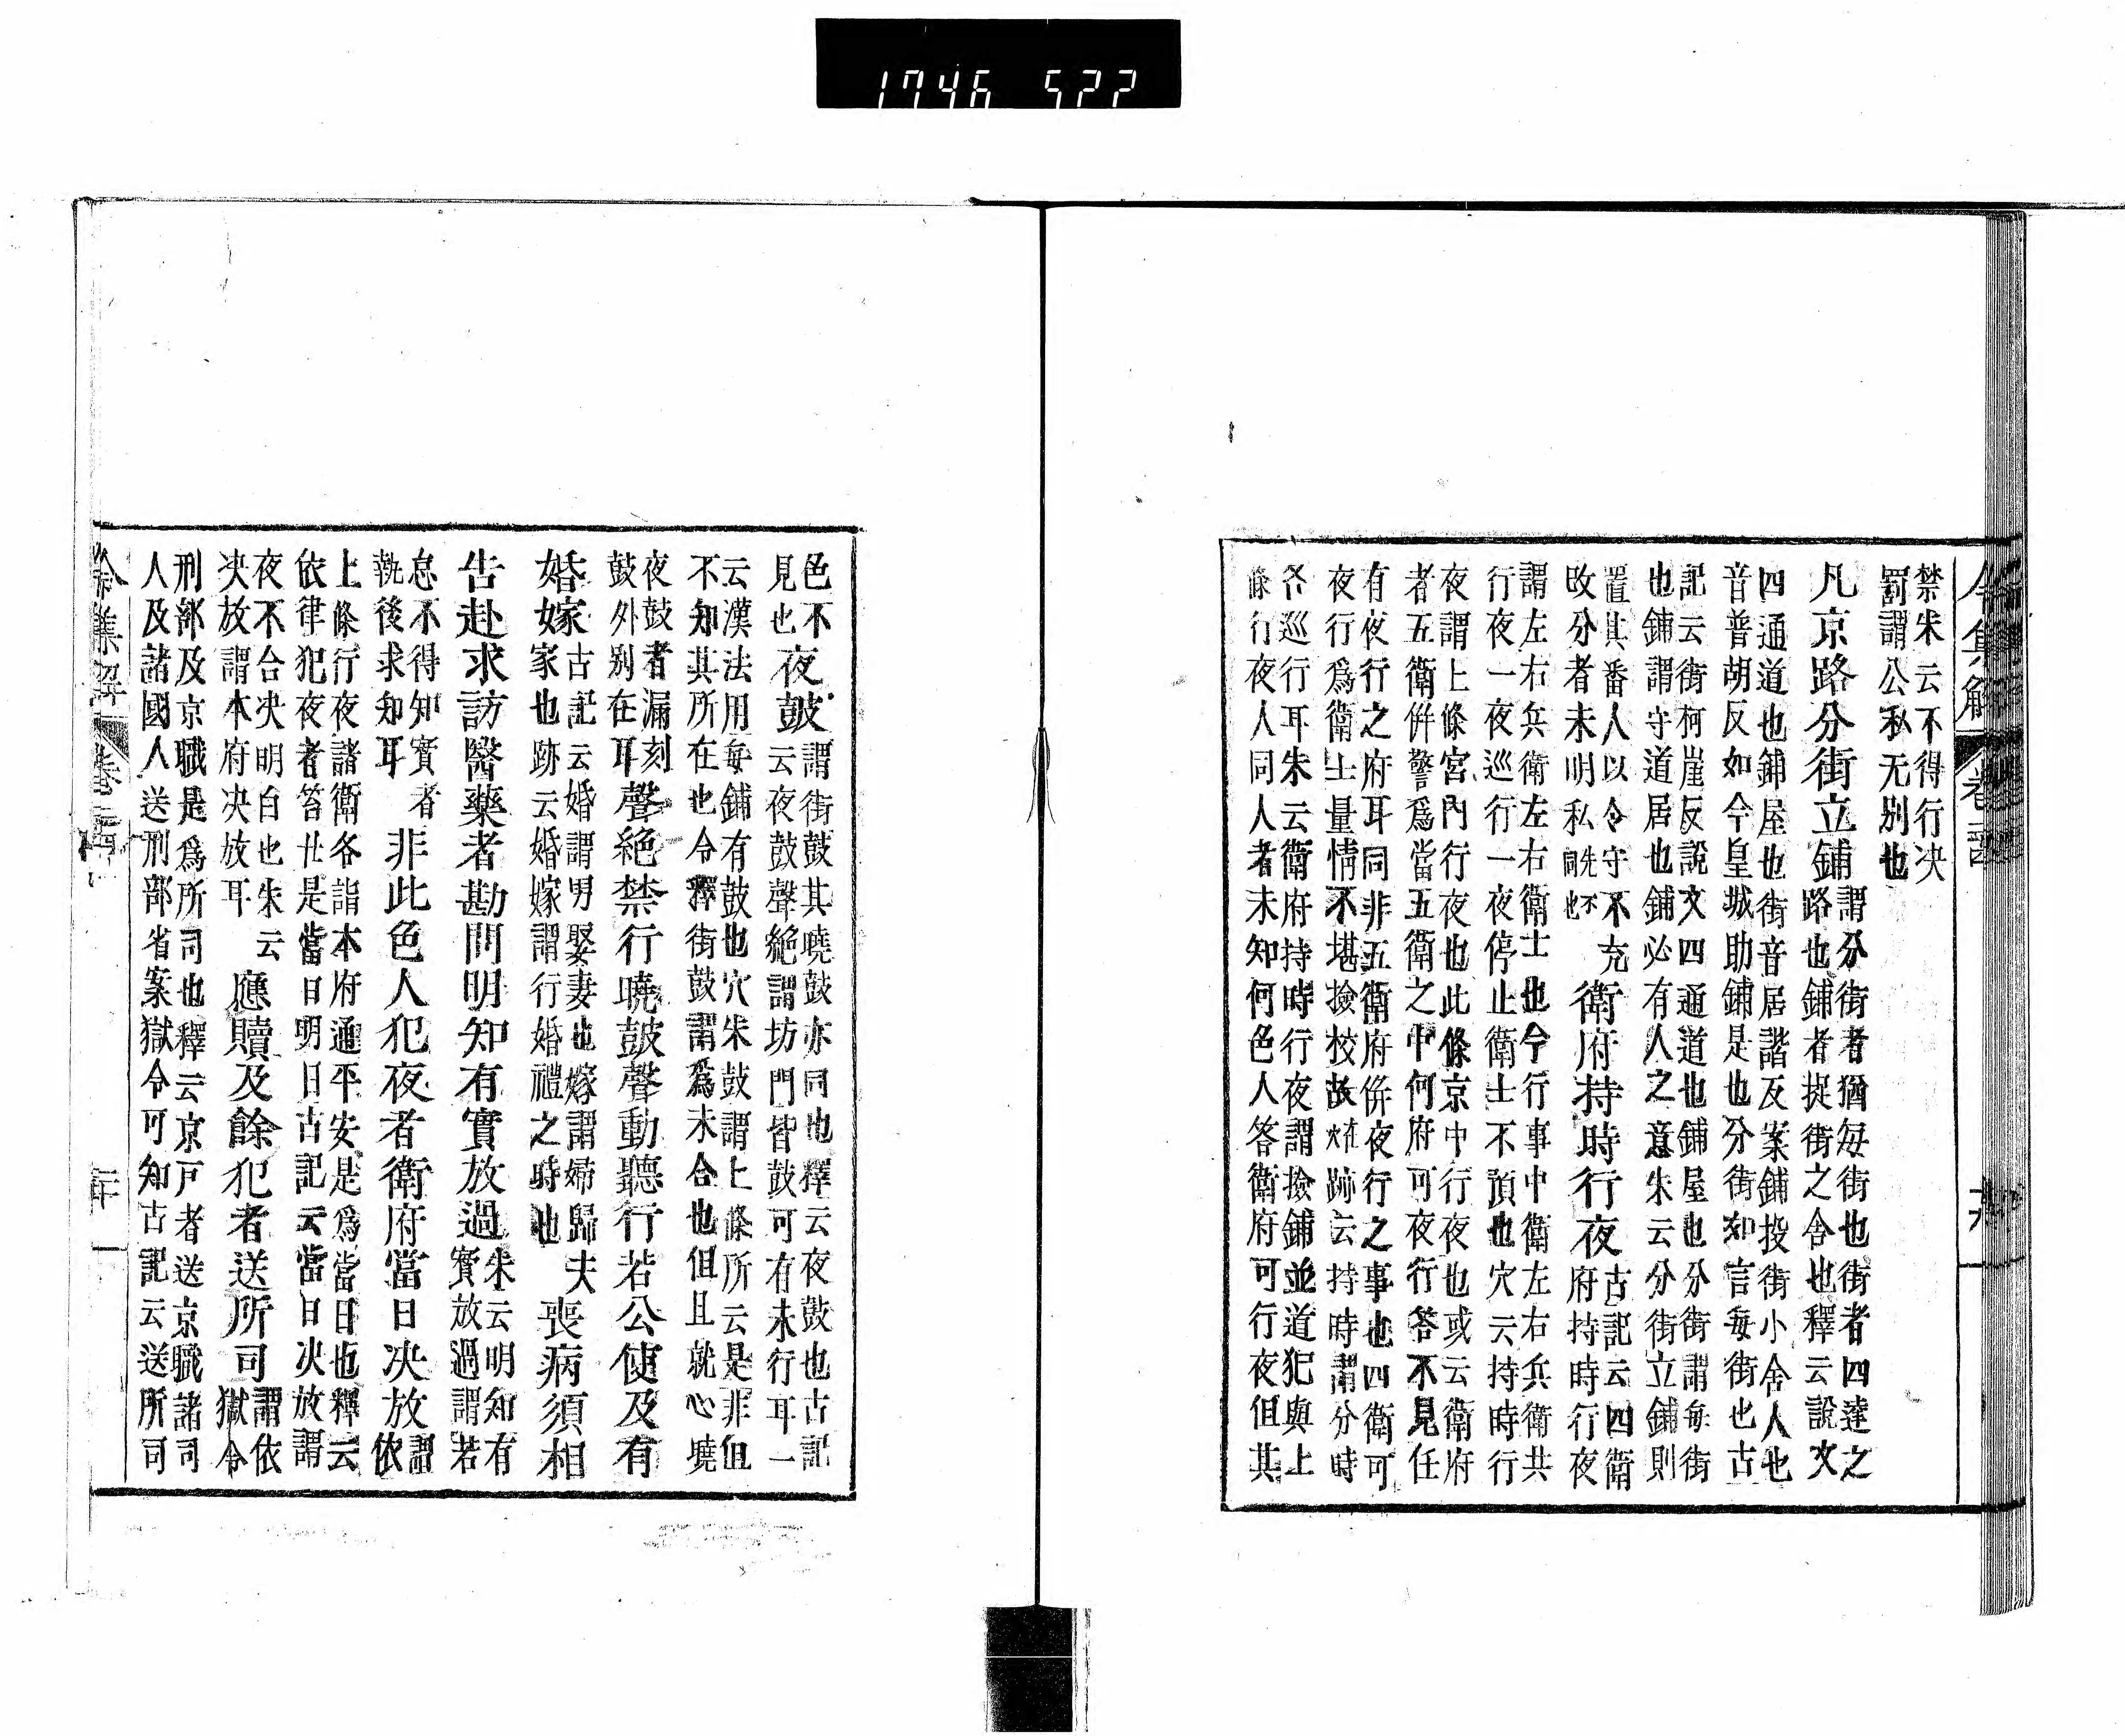 令集解卷
禁朱云不得行决
罰謂公私无別也
凡京路分街立鋪
謂分街者猶每街也街者四達之
路也鋪者捉街之舍也釋云說文
四通道也鋪屋也街音居諧反案鋪投街小舍人也
音普胡反如今皇城助鋪是也分街如言每街也古
記云街柯崖反說文四通道也鋪屋也分街謂每街
也鋪謂守道居也鋪必有人之意朱云分街立鋪則
置其番人以令守不充
改分者未明私同先不也
衛府持時行夜
古記云四衛
府持時行夜
謂左右兵衛左右衛士也今行事中衛左右兵衛共
行夜一夜巡行一夜停止衛士不預也穴云持時行
夜謂上條宮內行夜也此條京中行夜也或云衛府
者五衛併警爲當五衛之中何府可夜行答不見任
有夜行之府耳同非五衛府併夜行之事也四衛可
夜行爲衛士量情不堪撿校故在穴跡云持時謂分時
各巡行耳朱云衛府持時行夜謂撿鋪並道犯與上
條行夜人同人者未知何色人答衛府可行夜但其
色不
見也
夜鼓
謂街鼓其曉鼓亦同也釋云夜鼓也古記
云夜鼓聲絕謂坊門皆鼓可有未行耳一
云漢法用每鋪有鼓也穴朱鼓謂上條所云是非但
不知其所在也令釋街鼓謂爲未合也但且就心曉
夜鼓者漏刻
鼓外別在耳
聲絕禁行曉鼓聲動聽行若公使及有
婚嫁
古記云婚謂男娶妻也嫁謂婦歸夫
家也跡云婚嫁謂行婚禮之時也
喪病須相
告赴求訪醫藥者勘問明知有實放過
朱云明知有
實放過謂若
怠不得知實者
執後求知耳
非此色人犯夜者衛府當日决放
謂
依
上條行夜諸衛各詣本府通平安是爲當日也釋云
依律犯夜者笞廿是當日明日古記云當日决放謂
夜不合决明白也朱云
决放謂本府决放耳
應贖及餘犯者送所司
謂依
獄令
刑部及京職是爲所司也釋云京戸者送京職諸司
人及諸國人送刑部省案獄令可知古記云送所司
令集解卷